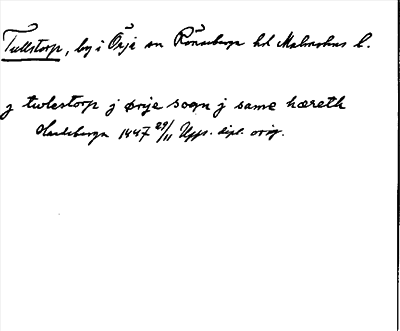 Tullstorp, by i Örje sn Rönnebergs hd Malmöhus l.
j twlestorp j ørije sogn j same hæreth
1447 29/11 Upps. dipl. orig.